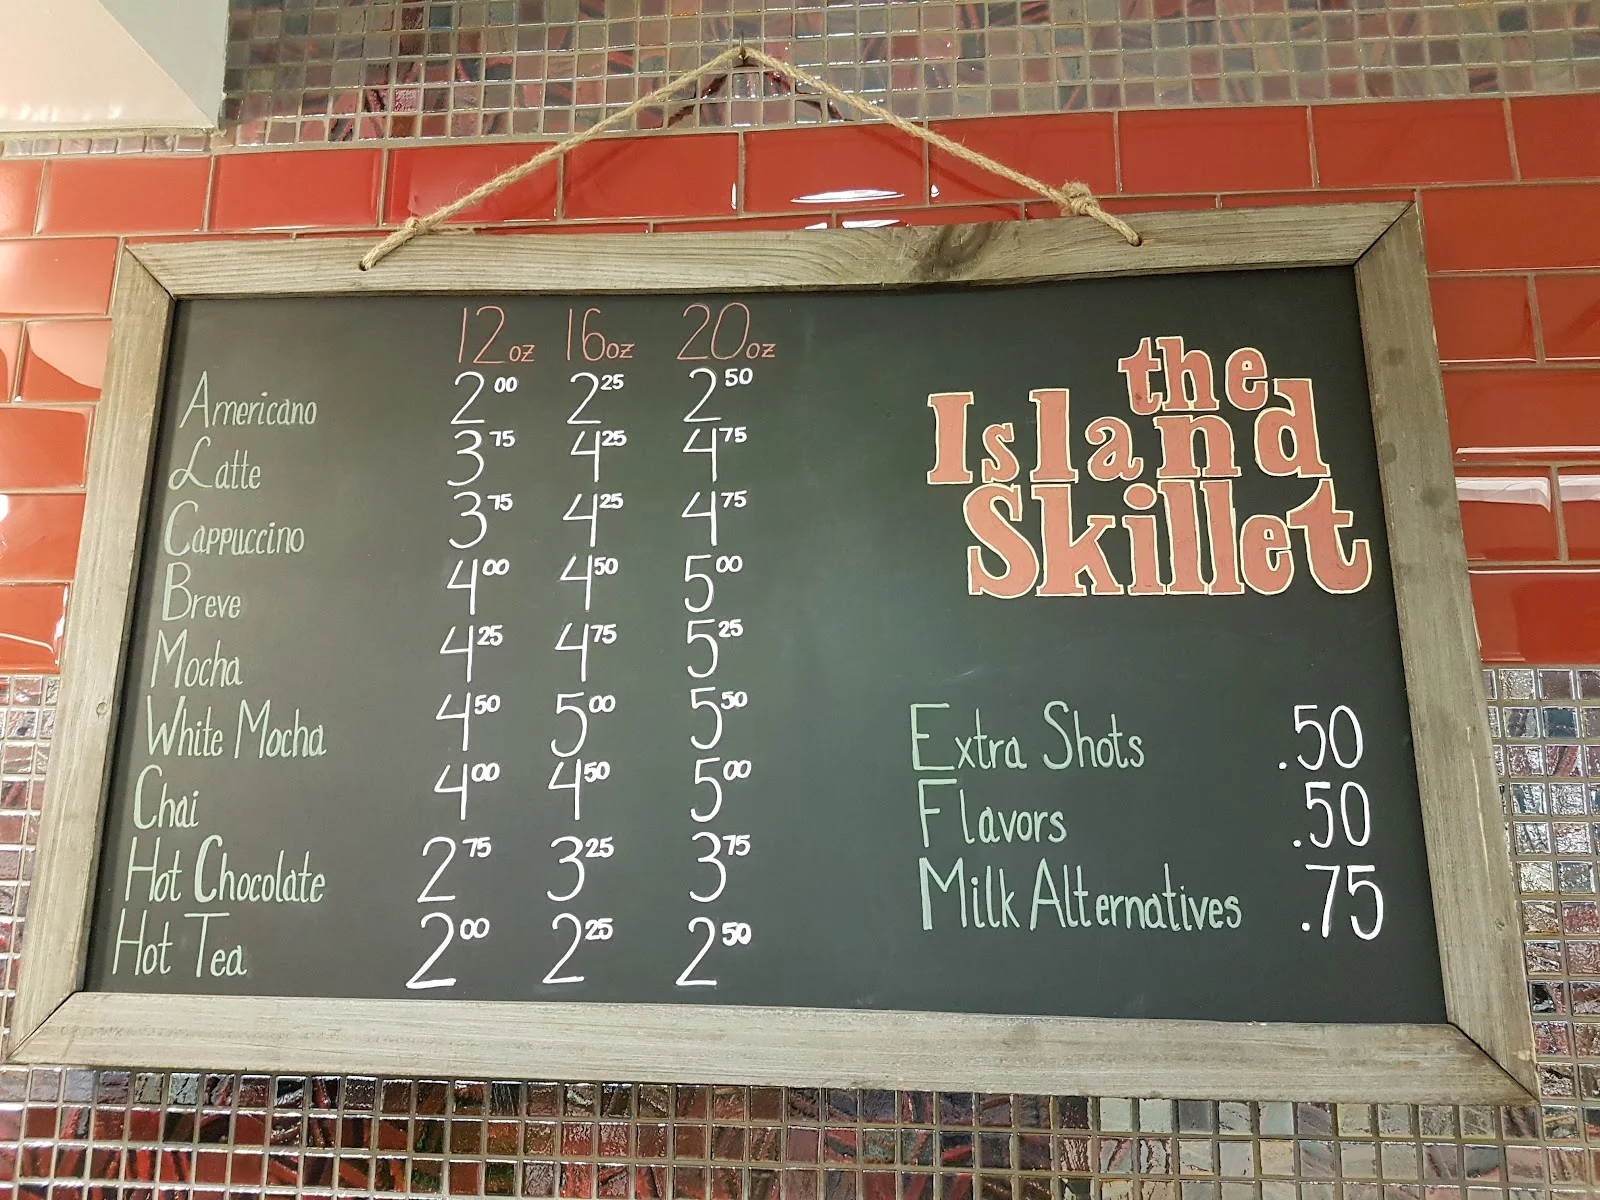 12oz 16oz 20oz
Americano 2 00 2 25 2 50
Latte 3 75 4 25 4 75
Cappuccino 3 75 4 25 4 75
Breve 4 00 4 50 5 00
Mocha 4 25 4 75 5 25
White Mocha 4 50 5 00 5 50
Chai 4 00 4 50 5 00
Hot Chocolate 2 75 3 25 3 75
Hot Tea 2 00 2 25 2 50
the
Island
Skillet
Extra Shots .50
Flavors .50
Milk Alternatives .75